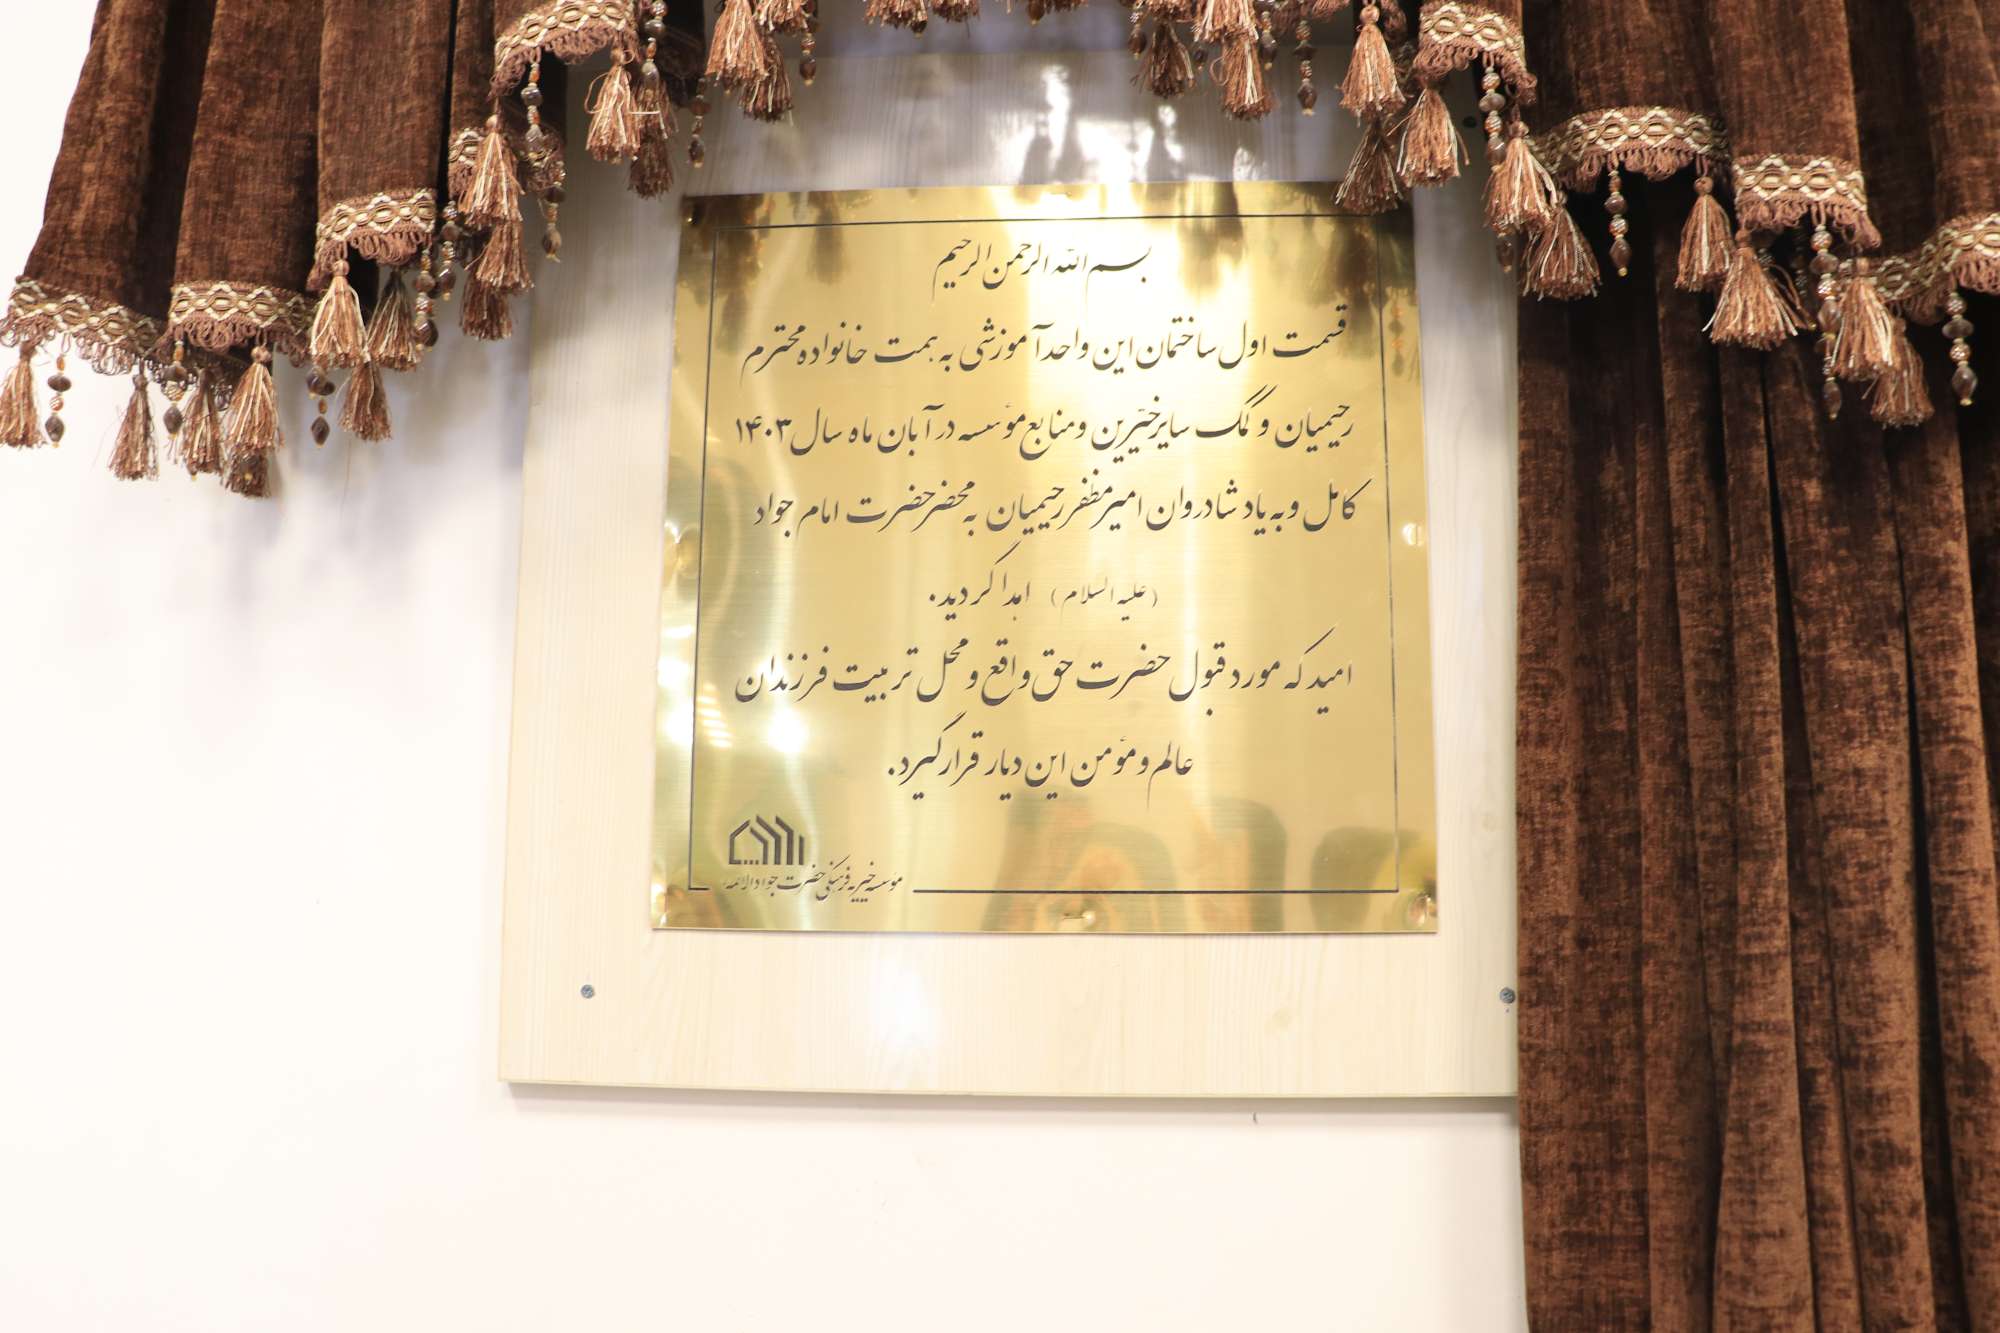 بسم الله الرحمن الرحیم
قسمت اول ساختمان این واحد آموزشی به همت خانواده محترم
رحیمیان و کمک سایر خیّرین و منابع مؤسسه در آبان ماه سال ۱۴۰۳
کامل و به یاد شادروان امیر مظفر رحیمیان به محضر حضرت امام جواد
(علیه السلام) اهدا گردید.
امید که مورد قبول حضرت حق واقع و محل تربیت فرزندان
عالم و مؤمن این دیار قرار گیرد.
مؤسسه خیریه فرهنگی حضرت جواد الائمه